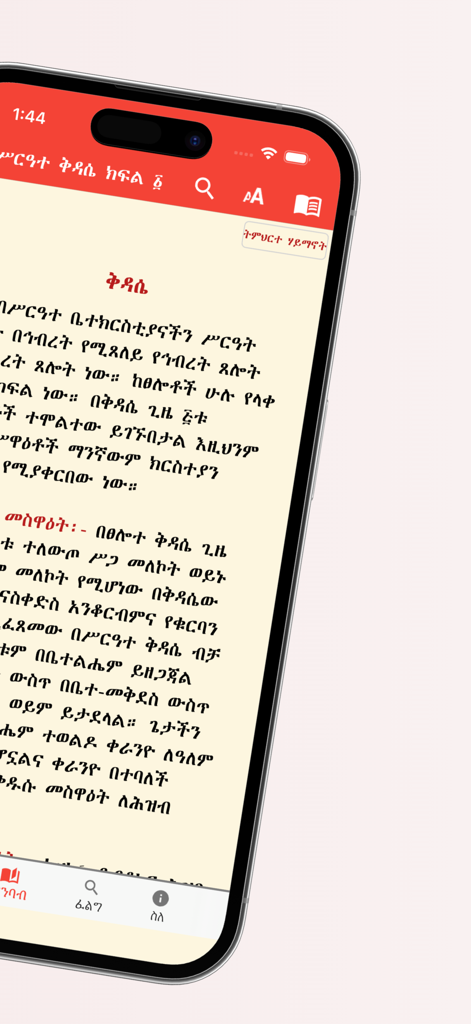 1:44
ሥርዓተ ቅዳሴ ክፍል ፩
A
ትምህርተ ሃይማኖት
ቅዳሴ
በሥርዓተ ቤተክርስቲያናችን ሥርዓት
በኅብረት የሚጸለይ የኅብረት ጸሎት
ጸሎት ነው። ከፀሎቶች ሁሉ የላቀ
ክፍል ነው። በቅዳሴ ጊዜ ፭ቱ
ተሞልተው ይገኙበታል እዚህንም
ማንኛውም ክርስተያን
የሚያቀርበው ነው።
መስዋዕት፡- በፀሎተ ቅዳሴ ጊዜ
ተለውጦ ሥጋ መለኮት ወይኑ
መለኮት የሚሆነው በቅዳሴው
አንቆርብምና የቁርባን
በሥርዓተ ቅዳሴ ብቻ
በቤተልሔም ይዘጋጃል
ውስጥ በቤተ-መቅደስ ውስጥ
ወይም ይታደላል። ጌታችን
ተወልዶ ቀራንዮ ለዓለም
ቀራንዮ በተባለች
መስዋዕት ለሕዝብ
ፈልግ
ስለ